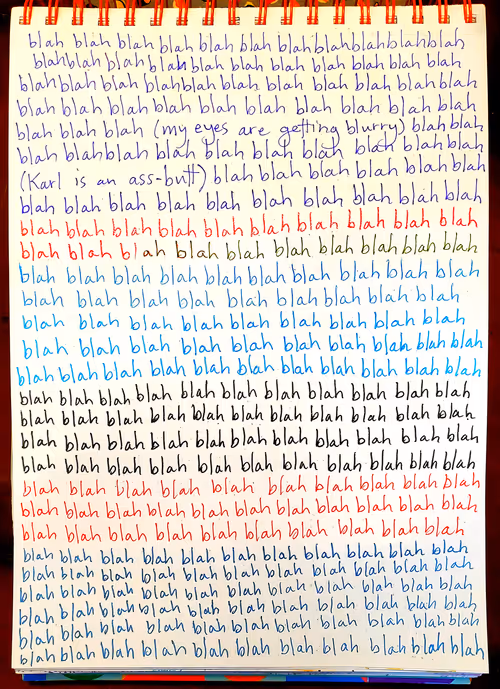 blah blah blah blah blah blah blah blah blah blah blah
blah blah blah blah blah blah blah blah blah blah
blah blah blah blah blah blah blah blah blah blah blah
blah blah blah blah blah blah blah blah blah blah
blah blah blah (my eyes are getting blurry) blah blah
blah blah blah blah blah blah blah blah blah blah
(Karl is an ass-butt) blah blah blah blah blah blah
blah blah blah blah blah blah blah blah blah blah
blah blah blah blah blah blah blah blah blah blah
blah blah blah blah blah blah blah blah blah blah
blah blah blah blah blah blah blah blah blah blah
blah blah blah blah blah blah blah blah blah
blah blah blah blah blah blah blah blah blah
blah blah blah blah blah blah blah blah blah blah
blah blah blah blah blah blah blah blah blah blah blah
blah blah blah blah blah blah blah blah blah blah blah
blah blah blah blah blah blah blah blah blah blah blah
blah blah blah blah blah blah blah blah blah blah blah
blah blah blah blah blah blah blah blah blah blah blah
blah blah blah blah blah blah blah blah blah blah
blah blah blah blah blah blah blah blah blah blah blah
blah blah blah blah blah blah blah blah blah blah
blah blah blah blah blah blah blah blah blah blah blah
blah blah blah blah blah blah blah blah blah blah blah
blah blah blah blah blah blah blah blah blah blah blah
blah blah blah blah blah blah blah blah blah blah blah
blah blah blah blah blah blah blah blah blah blah blah
blah blah blah blah blah blah blah blah blah blah blah